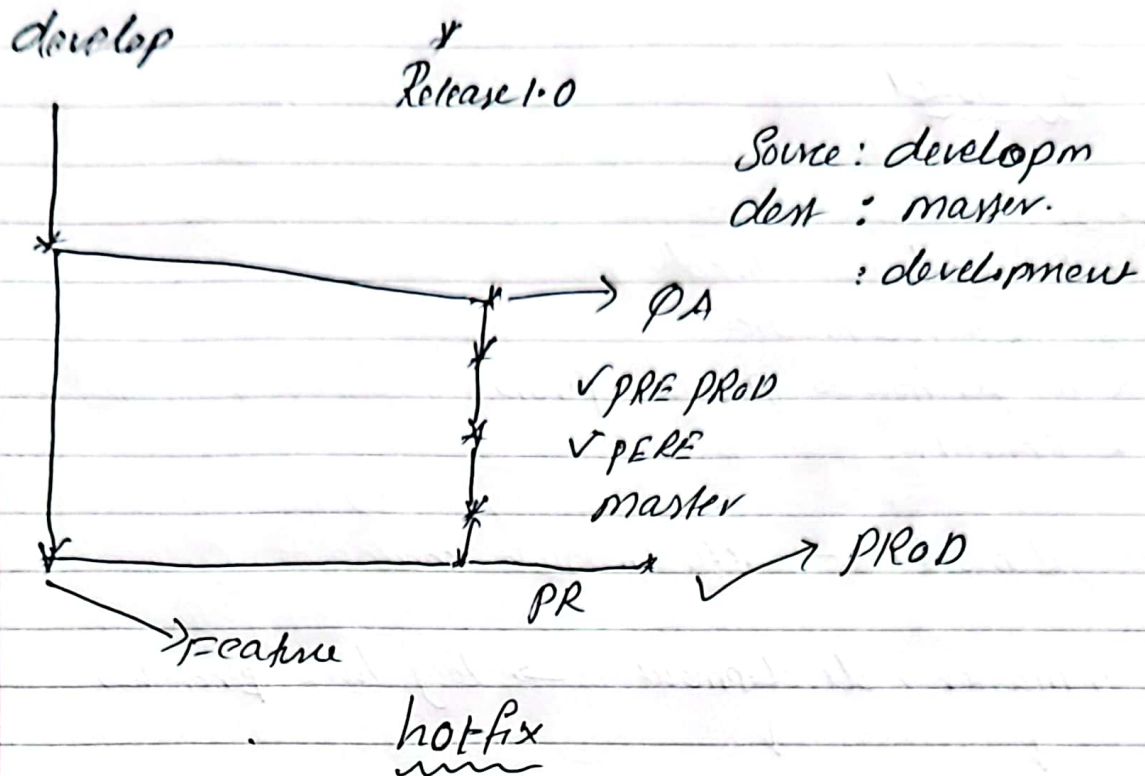 develop
Release 1.0
Source : developm
dest : master.
: development
QA
✓ PRE PROD
✓ PERE
master
PROD
PR
Feature
hotfix